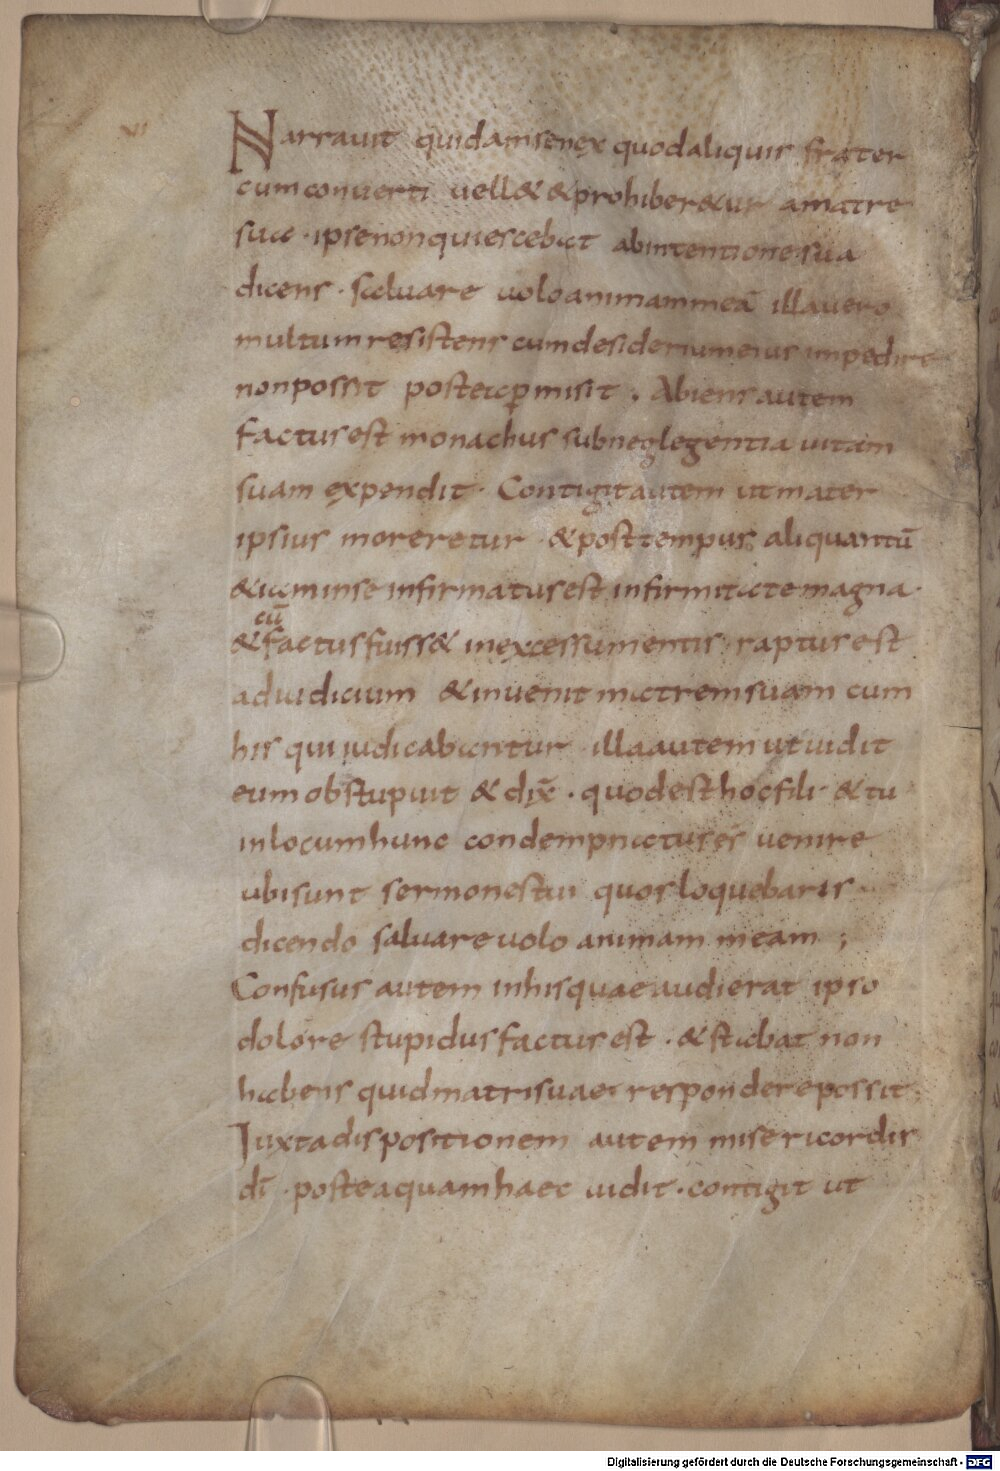 VI
Narrauit quidam senex quod aliquis frater
cum conuerti uell& & prohiber&ur a matre
sua · ipse non quiescebat ab intentione sua
dicens · saluare uolo animam meā illa uero
multum resistens cum desiderium eius impedire
non possit postea ꝑmisit . Abiens autem
factus est monachus sub neglegentia uitam
suam expendit · Contigit autem ut mater
ipsius moreretur · & post tempus aliquantū
& iam inse infirmatus est infirmitate magna ·
cū
& factus fuiss& in excessu mentis · raptus est
ad uidicium & inuenit matrem suam cum
his qui iudicabantur · illa autem ut uidit
eum obstupuit & dix̄ . quod est hoc fili · & tu
in locum hunc condempnatus es uenire
ubi sunt sermones tui quos loquebaris ·
dicendo saluare uolo animam meam ;
Confusus autem in his quae audierat ipso
dolore stupidus factus est . & stabat non
habens quid matri suae respondere possit ·
Iuxta dispositionem autem misericordis
dī · postea quam haec uidit · contigit ut
Digitalisierung gefördert durch die Deutsche Forschungsgemeinschaft - DFG